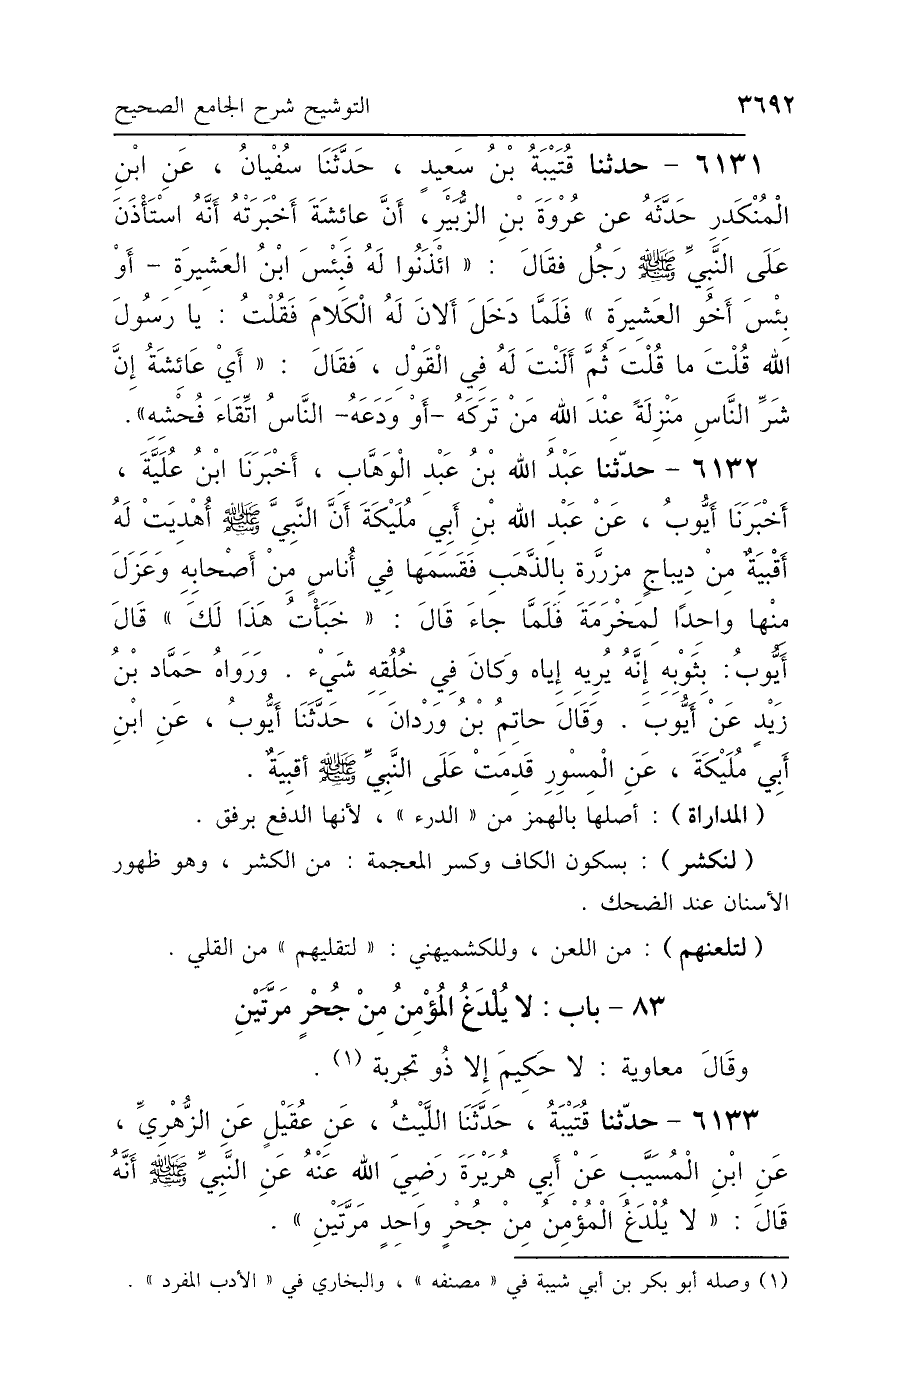 ٣٦٩٢ التوشيح شرح الجامع الصحيح
٦١٣١ - حدثنا قُتَيْبَةُ بْنُ سَعِيدٍ ، حَدَّثَنَا سُفْيانُ ، عَنِ ابْنِ
الْمُنْكَدِرِ حَدَّثَهُ عن عُرْوَةَ بْنِ الزُّبَيْرِ، أَنَّ عائِشَةَ أَخْبَرَتْهُ أَنَّهُ اسْتَأْذَنَ
عَلَى النَّبِيِّ ﷺ رَجُل فقالَ : « ائْذَنُوا لَهُ فَبِئْسَ ابْنُ العَشِيرَةِ - أَوْ
بِئْسَ أَخُو العَشِيرَةِ » فَلَمَّا دَخَلَ أَلانَ لَهُ الْكَلامَ فَقُلْتُ : يا رَسُولَ
الله قُلْتَ ما قُلْتَ ثُمَّ أَلَنْتَ لَهُ فِي الْقَوْلِ ، فَقالَ : « أَيْ عَائِشَةُ إِنَّ
شَرَّ النَّاسِ مَنْزِلَةً عِنْدَ الله مَنْ تَرَكَهُ -أَوْ وَدَعَهُ- النَّاسُ اتِّقَاءَ فُحْشِهِ».
٦١٣٢ - حدّثنا عَبْدُ الله بْنُ عَبْدِ الْوَهَّابِ ، أَخْبَرَنَا ابْنُ عُلَيَّةَ ،
أَخْبَرَنَا أَيُّوبُ ، عَنْ عَبْدِ الله بْنِ أَبِي مُلَيْكَةَ أَنَّ النَّبِيَّ ﷺ أُهْدِيَتْ لَهُ
أَقْبِيَةٌ مِنْ دِيباجٍ مزررَّة بِالذَّهَبِ فَقَسَمَها فِي أُناسٍ مِنْ أَصْحابِهِ وَعَزَلَ
مِنْها واحِدًا لِمَخْرَمَةَ فَلَمَّا جاءَ قَالَ : « خَبَأْتُ هَذَا لَكَ » قَالَ
أَيُّوبُ: بِثَوْبِهِ إِنَّهُ يُرِيهِ إياه وَكَانَ فِي خُلُقِهِ شَيْء . وَرَوَاهُ حَمَّاد بْنُ
زَيْدٍ عَنْ أَيُّوبَ . وَقَالَ حاتِمُ بْنُ وَرْدانَ ، حَدَّثَنَا أَيُّوبُ ، عَنِ ابْنِ
أَبِي مُلَيْكَةَ ، عَنِ الْمِسْوَرِ قَدِمَتْ عَلَى النَّبِيِّ ﷺ أَقبِيَةٌ .
( المداراة ) : أصلها بالهمز من « الدرء » ، لأنها الدفع برفق .
( لنكشر ) : بسكون الكاف وكسر المعجمة : من الكشر ، وهو ظهور
الأسنان عند الضحك .
( لتلعنهم ) : من اللعن ، وللكشميهني : « لتقليهم » من القلي .
٨٣ - باب : لا يُلْدَغُ المُؤْمِنُ مِنْ جُحْرٍ مَرَّتَيْنِ
وقَالَ معاوية : لا حَكِيمَ إِلا ذُو تجربة (١) .
٦١٣٣ - حدّثنا قُتَيْبَةُ ، حَدَّثَنَا اللَّيْثُ ، عَنِ عُقَيْلٍ عَنِ الزُّهْرِيِّ ،
عَنِ ابْنِ الْمُسَيَّبِ عَنْ أَبِي هُرَيْرَةَ رَضِيَ الله عَنْهُ عَنِ النَّبِيِّ ﷺ أَنَّهُ
قَالَ : « لا يُلْدَغُ الْمُؤْمِنُ مِنْ جُحْرٍ وَاحِدٍ مَرَّتَيْنِ » .
(١) وصله أبو بكر بن أبي شيبة في « مصنفه » ، والبخاري في « الأدب المفرد » .